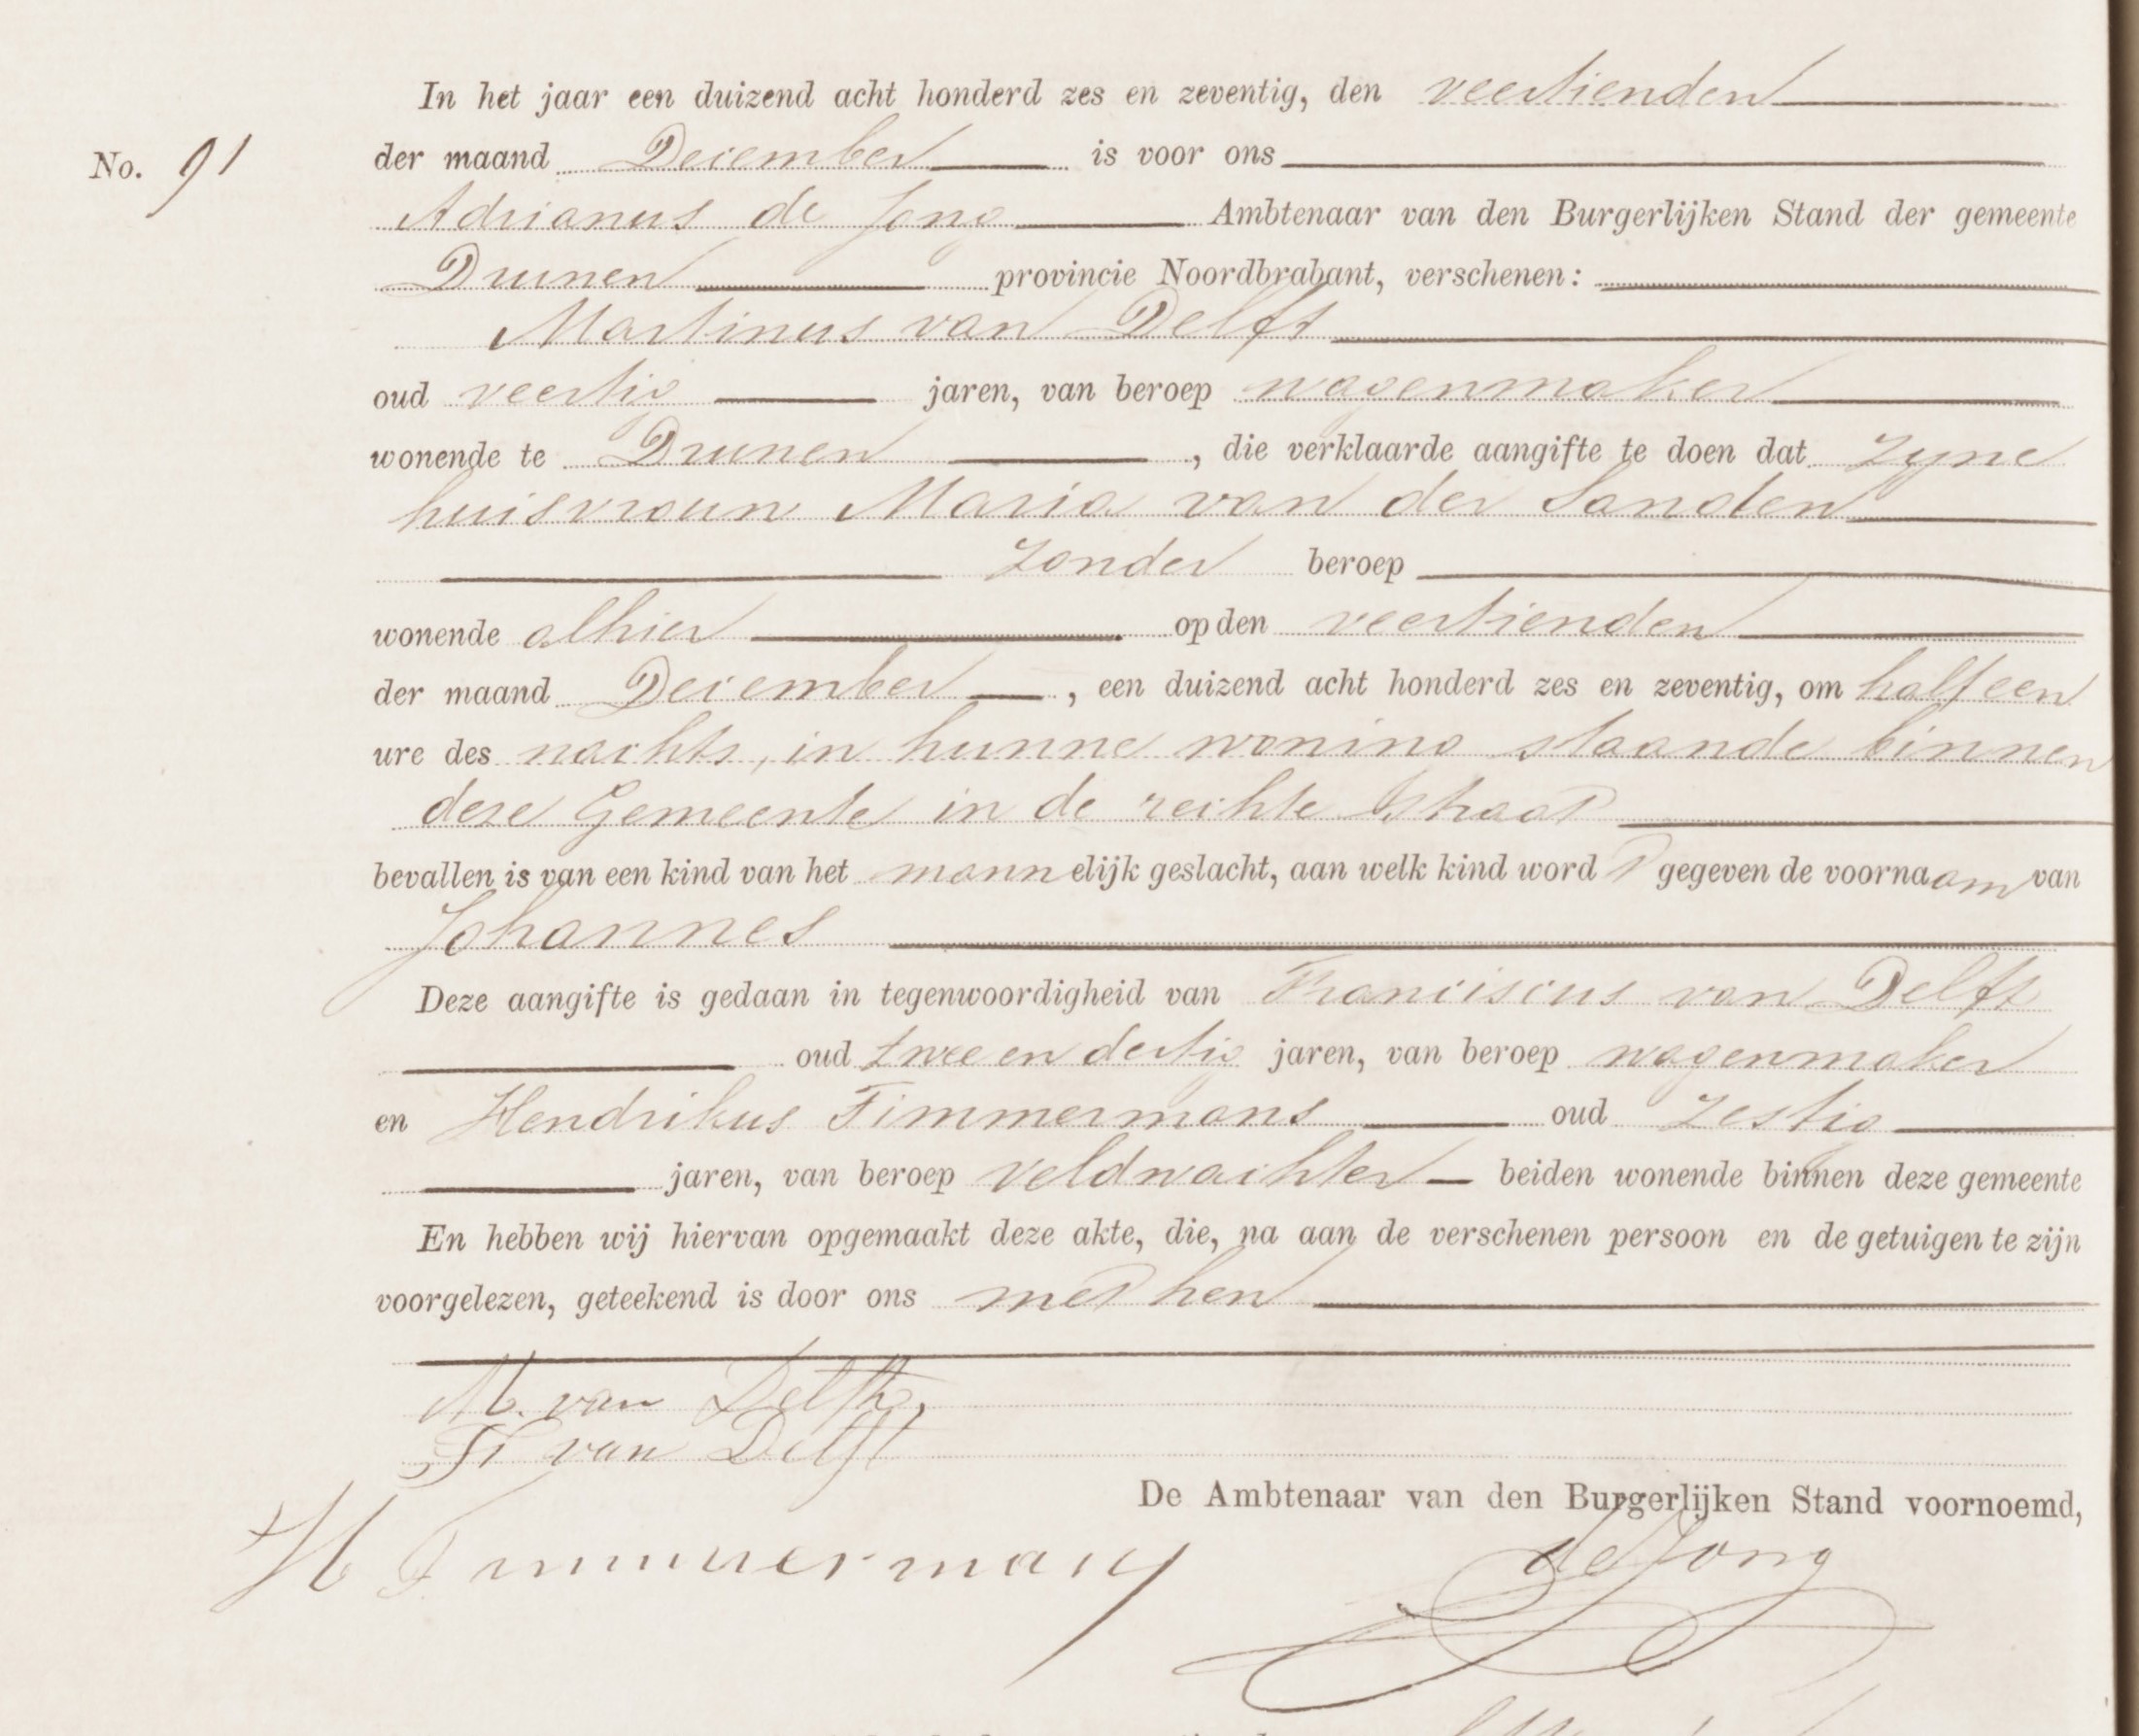 In het jaar een duizend acht honderd zes en zeventig, den veertienden
No. 91 der maand December is voor ons
Adrianus de Jong Ambtenaar van den Burgerlijken Stand der gemeente
Drunen provincie Noordbrabant, verschenen:
Martinus van Delft
oud veertig jaren, van beroep wagenmaker
wonende te Drunen, die verklaarde aangifte te doen dat zyne
huisvrouw Maria van der Sanden
zonder beroep
wonende alhier op den veertienden
der maand December, een duizend acht honderd zes en zeventig, om half een
ure des nachts, in hunne woning staande binnen
deze Gemeente in de rechte Straat
bevallen is van een kind van het mannelijk geslacht, aan welk kind wordt gegeven de voornaam van
Johannes
Deze aangifte is gedaan in tegenwoordigheid van Franciscus van Delft
oud twee en dertig jaren, van beroep wagenmaker
en Hendrikus Timmermans oud zestig
jaren, van beroep veldwachter beiden wonende binnen deze gemeente
En hebben wij hiervan opgemaakt deze akte, die, na aan de verschenen persoon en de getuigen te zijn
voorgelezen, geteekend is door ons met hen
M. van Delft,
Fr van Delft
De Ambtenaar van den Burgerlijken Stand voornoemd,
H Timmermans
de Jong